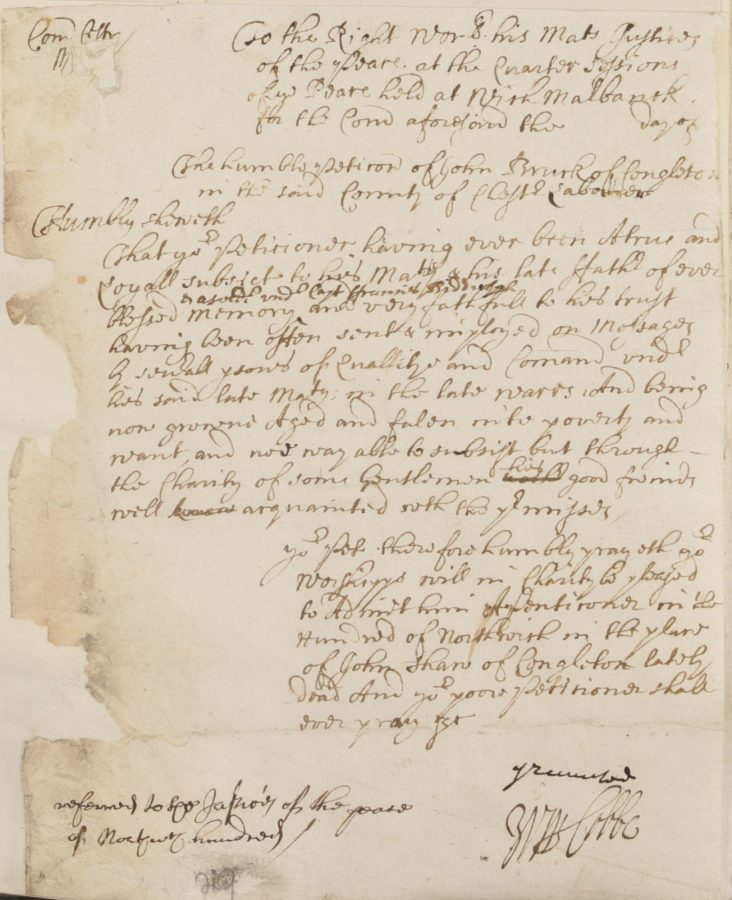 Com Cestr
To the Right Worll his Mats Justices
of the Peace at the Quarter Sessions
of ye Peace held at Wich Malbanck
for the Com aforesaid the day of
The humble Peticon of John Bruck of Congleton
in the said County of Chestr Labourer
Humbly sheweth
That yor Peticioner having ever been A true and
Loyall subiect to his Matie & his late Fathr of ever
as a soldr undr Capt
blessed memory and very faithfull to his trust
having been often sent & imployed on Messages
by seuall psons of Quallitye and Comand undr
his said late Maty in the late warrs, And being
now growne Aged and falen into poverty and
want and noe way able to subsist but through
the Charity of some Gentlemen his good freinds
well acquainted wth the pmisses
yor Petr therefore humbly prayeth yor
Worshipps will in Charity be pleased
to Admit him A Penticoner in the
Hundred of Northwich in the place
of John Shaw of Congleton lately
dead And yor poore Peticioner shall
ever pray &c
referred to the Justices of the peace
of Northwch hundred